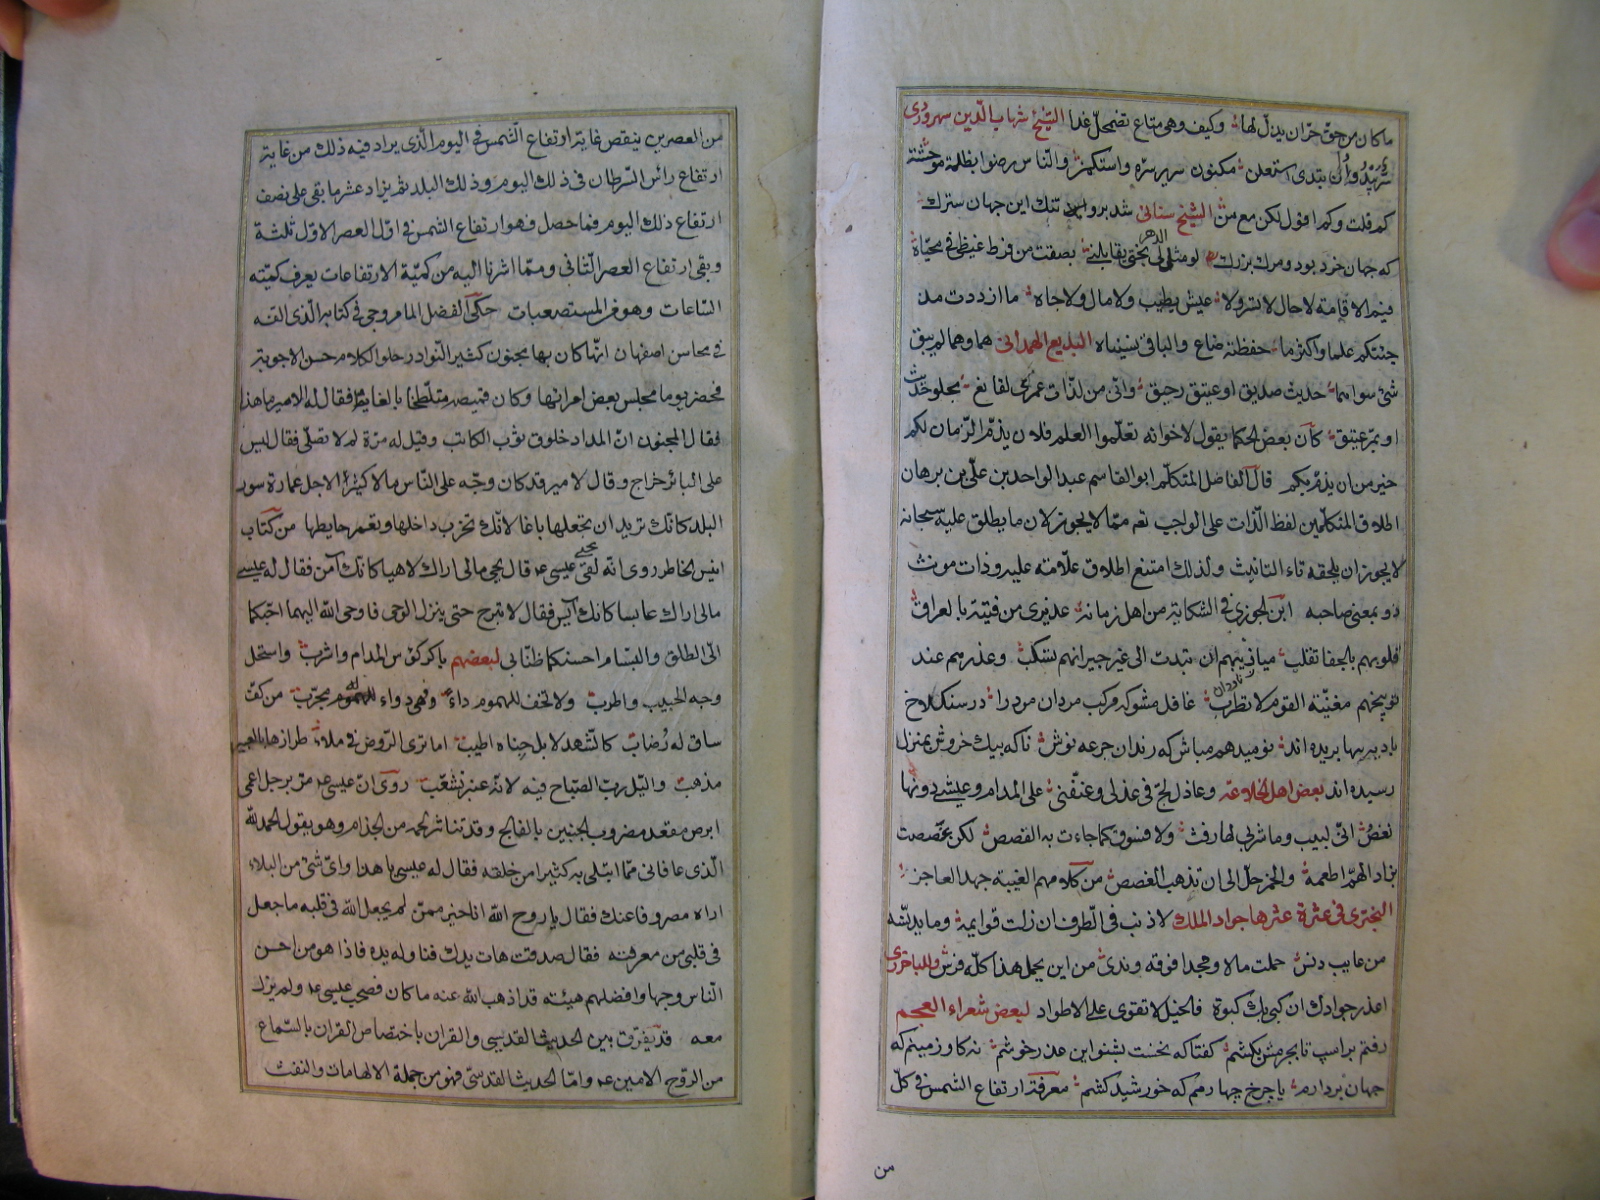 ما كان من حق حر ان يذل لها وكيف وهي متاع تضمحل غدا الشيخ شهاب الدين سهروردى
بتدى استعلن مكنون سرير سره واستكمن والناس رضوا بظلمة موحشة
كم قلت وكم اقول لكن مع من الشيخ سنائى شد برون تنك اين جهان سترك
كه جهان خرد بود ومرك بزرك لومثل لى الدهر بصقت من فرط غيظى فى محياه
فيم الاقامة لا حال لا تسر ولا عيش يطيب ولا مال ولا جاه ما ازددت مذ
جئتكم علما واكثر ما حفظته ضاع والباقى سنساه البديع الهمدانى هما وهما لم يبق
شئ سواهما حديث صديق او عتيق رحيق وانى من لذات عمرى لقانع بحلو حديث
او بمر عتيق كان بعض الحكما يقول لاخوانه تعلموا العلم فلان يذم الزمان لكم
خير من ان يذم بكم قال الفاضل المتكلم ابو القاسم عبد الواحد بن على بن برهان
اطلاق المتكلمين لفظ الذات على الواجب تعه مما لا يجوز لان ما يطلق عليه سبحانه
لا يجوز ان يلحقه تاء التانيث ولذلك امتنع اطلاق علامته عليه وذات مونث
ذو بمعنى صاحبه ابن الجوزى فى الشكاية من اهل زمانه عذيرى من فتية بالعراق
قلوبهم بالجفا تقلب ميازيبهم ان تبدت الى غير جيرانهم تسكب وعذرهم عند
توبيخهم مغنية القوم لا تطرب غافل مشو كه مركب مردان مرد را در سنكلاخ
باديه پيها بريده اند نوميد هم مباش كه رندان جرعه نوش ناكه بيك خروش بمنزل
رسيده اند بعض اهل الخلاعه وعاذل لج فى عذلى وعنفنى على المدام وعيشى دونها
نغص انى لبيب وما شربى لها رفث ولا فسوق كما جاءت به القصص لكن بغصصت
بزاد الهم اطعمه والخمر حل الى ان تذهب الغصص من كلامهم الغيبة جهد العاجز
البخترى فى عثرة عثرها جواد الملك لا ذنب فى الطرف ان زلت قوايمه وما يدنسه
من عايب دنس حملت مالا ومجدا فوقه وندى من اين يحمل هذا كله فرس وللباخرزى
اعذر جوادك ان كبى بك كبوة فالخيل لا تقوى على الاطواد لبعض شعراء العجم
رفتم بر اسپ تا بجرمش بكشم كفتا كه نخست بشنو اين عذر خوشم نه كاو زمينم كه
جهان بردارم يا چرخ چهارمم كه خورشيد كشم معرفة ارتفاع الشمس فى كل
من
من العصرين ينقص غاية ارتفاع الشمس فى اليوم الذى يراد فيه ذلك من غاية
ارتفاع رأس السرطان فى ذلك اليوم وذلك البلد ثم يزاد عشر ما بقى على نصف
ارتفاع ذلك اليوم فما حصل فهو ارتفاع الشمس فى اول العصر الاول ثلثة
وبقى ارتفاع العصر الثانى ومما اشرنا اليه من كمية الارتفاعات يعرف كميته
الساعات وهو فر المستصعبات حكى الفضل المامروجى فى كتابه الذى الفه
فى محاسن اصفهان انها كان بها مجنون كثير النوادر حلو الكلام حسن الاجوبة
فحضر يوما مجلس بعض امرائها وكان قميصه متلطخا بالغايط فقال له الامير ما هذا
فقال المجنون ان المداد خلوق ثوب الكاتب وقيل له مرة لم لا تصلى فقال ليس
على البائر خراج وقال لامير قد كان وجه على الناس مالا كثيرا لاجل عمارة سور
البلد كانك تريد ان تجعلها باغا لانك تخرب داخلها وتعمر حايطها من كتاب
انيس الخاطر روى انه لقى يحيى عيسى ع قال يحيى مالى اراك لاهيا كانك آمن فقال له عيسى
مالى اراك عابسا كانك آيس فقال لا تبرح حتى ينزل الوحى فاوحى الله اليهما احبكما
الى الطلق والبسام احسنكما ظنا بى لبعضهم باكر كؤس المدام واشرب واستحل
وجه الحبيب واطرب ولا تخف للهموم داء فهى دواء له مجرب من كف
ساق له رضاب كالشهد لا بل جناه اطيب اما ترى الروض فى ملاء طرازها
مذهب والليل رب الصباح فيه لانه عنبر تشعب روى ان عيسى ع مر برجل اعمى
ابرص مقعد مضروب الجنبين بالفالج وقد تناثر لحمه من الجذام وهو يقول الحمد لله
الذى عافانى مما ابتلى به كثيرا من خلقه فقال له عيسى يا هذا واى شئ من البلاء
اراه مصروفا عنك فقال يا روح الله انا خير ممن لم يجعل الله فى قلبه ما جعل
فى قلبى من معرفته فقال صدقت هات يدك فناوله يده فاذا هو من احسن
الناس وجها وافضلهم هيئته قد اذهب الله عنه ما كان فصحب عيسى ع ولم يزل
معه قد يفرق بين الحديث القدسى والقران باختصاص القران بالسماع
من الروح الامين ع واما الحديث القدسى فهو من جملة الالهامات والنفث